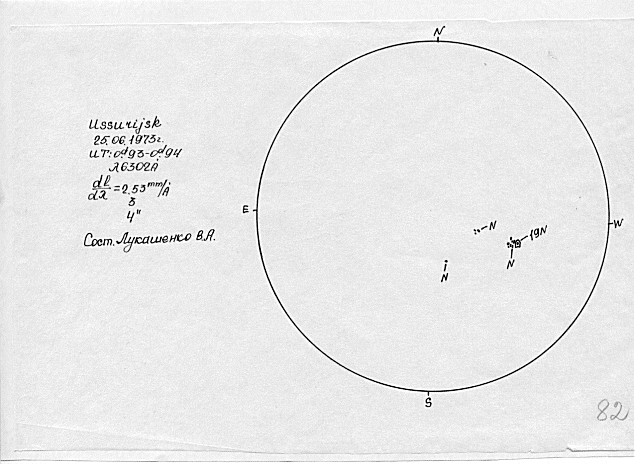 N
Ussurijsk
25.06.1973г.
UT: 0ᵈ93-0ᵈ94
λ6302Å
dl/dλ = 2.53 mm/Å
3
4"
Сост. Лукашенко В.А.
E
W
N
19N
N
N
S
82